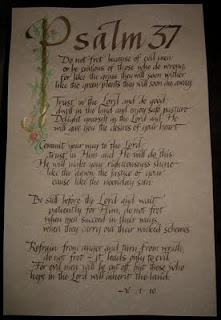 Psalm 37
Do not fret because of evil men
or be envious of those who do wrong;
for like the grass they will soon wither
like the green plants they will soon die away.
Trust in the Lord and do good
dwell in the land and enjoy safe pasture
Delight yourself in the Lord and He
will give you the desires of your heart
Commit your way to the Lord
trust in Him and He will do this:
He will make your righteousness shine
like the dawn, the justice of your
cause like the noonday sun.
Be still before the Lord and wait
patiently for Him; do not fret
when men succeed in their ways,
when they carry out their wicked schemes
Refrain from anger and turn from wrath;
do not fret - it leads only to evil.
For evil men will be cut off, but those who
hope in the Lord will inherit the land.